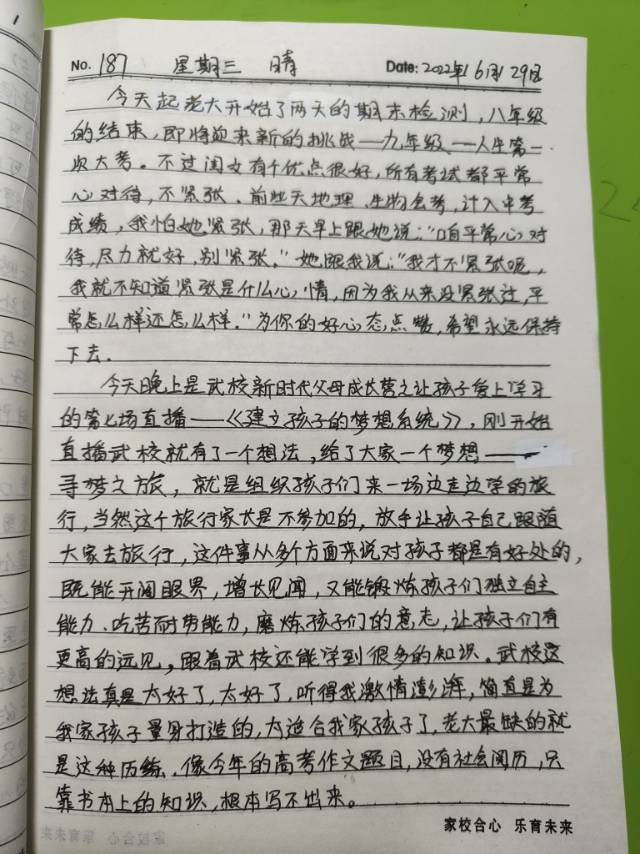 No. 187 星期三 晴 Date: 2022年6月29日
今天起老大开始了两天的期末检测,八年级
的结束,即将迎来新的挑战——九年级,——人生第一
次大考。不过闺女有个优点很好,所有考试都平常
心对待,不紧张。前些天地理、生物会考,计入中考
成绩,我怕她紧张,那天早上跟她说:“咱平常心对
待,尽力就好,别紧张。”她跟我说:“我才不紧张呢,
我就不知道紧张是什么心情,因为我从来没紧张过,平
常怎么样还怎么样。”为你的好心态点赞,希望永远保持
下去。
今天晚上是武校新时代父母成长营之让孩子爱上学习
的第七场直播——《建立孩子的梦想系统》,刚开始
直播武校就有了一个想法,给了大家一个梦想——
寻梦之旅,就是组织孩子们来一场边走边学的旅
行,当然这个旅行家长是不参加的,放手让孩子自己跟随
大家去旅行,这件事从多个方面来说对孩子都是有好处的,
既能开阔眼界,增长见闻,又能锻炼孩子们独立自主
能力、吃苦耐劳能力,磨炼孩子们的意志,让孩子们有
更高的远见,跟着武校还能学到很多的知识。武校这
想法真是太好了,太好了,听得我激情澎湃,简直是为
我家孩子量身打造的,太适合我家孩子了,老大最缺的就
是这种历练,像今年的高考作文题目,没有社会阅历,只
靠书本上的知识,根本写不出来。
家校合心 乐育未来